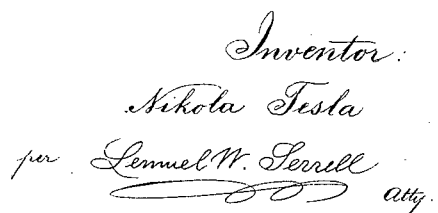 Inventor:
Nikola Tesla
per Lemuel W. Serrell
Atty.